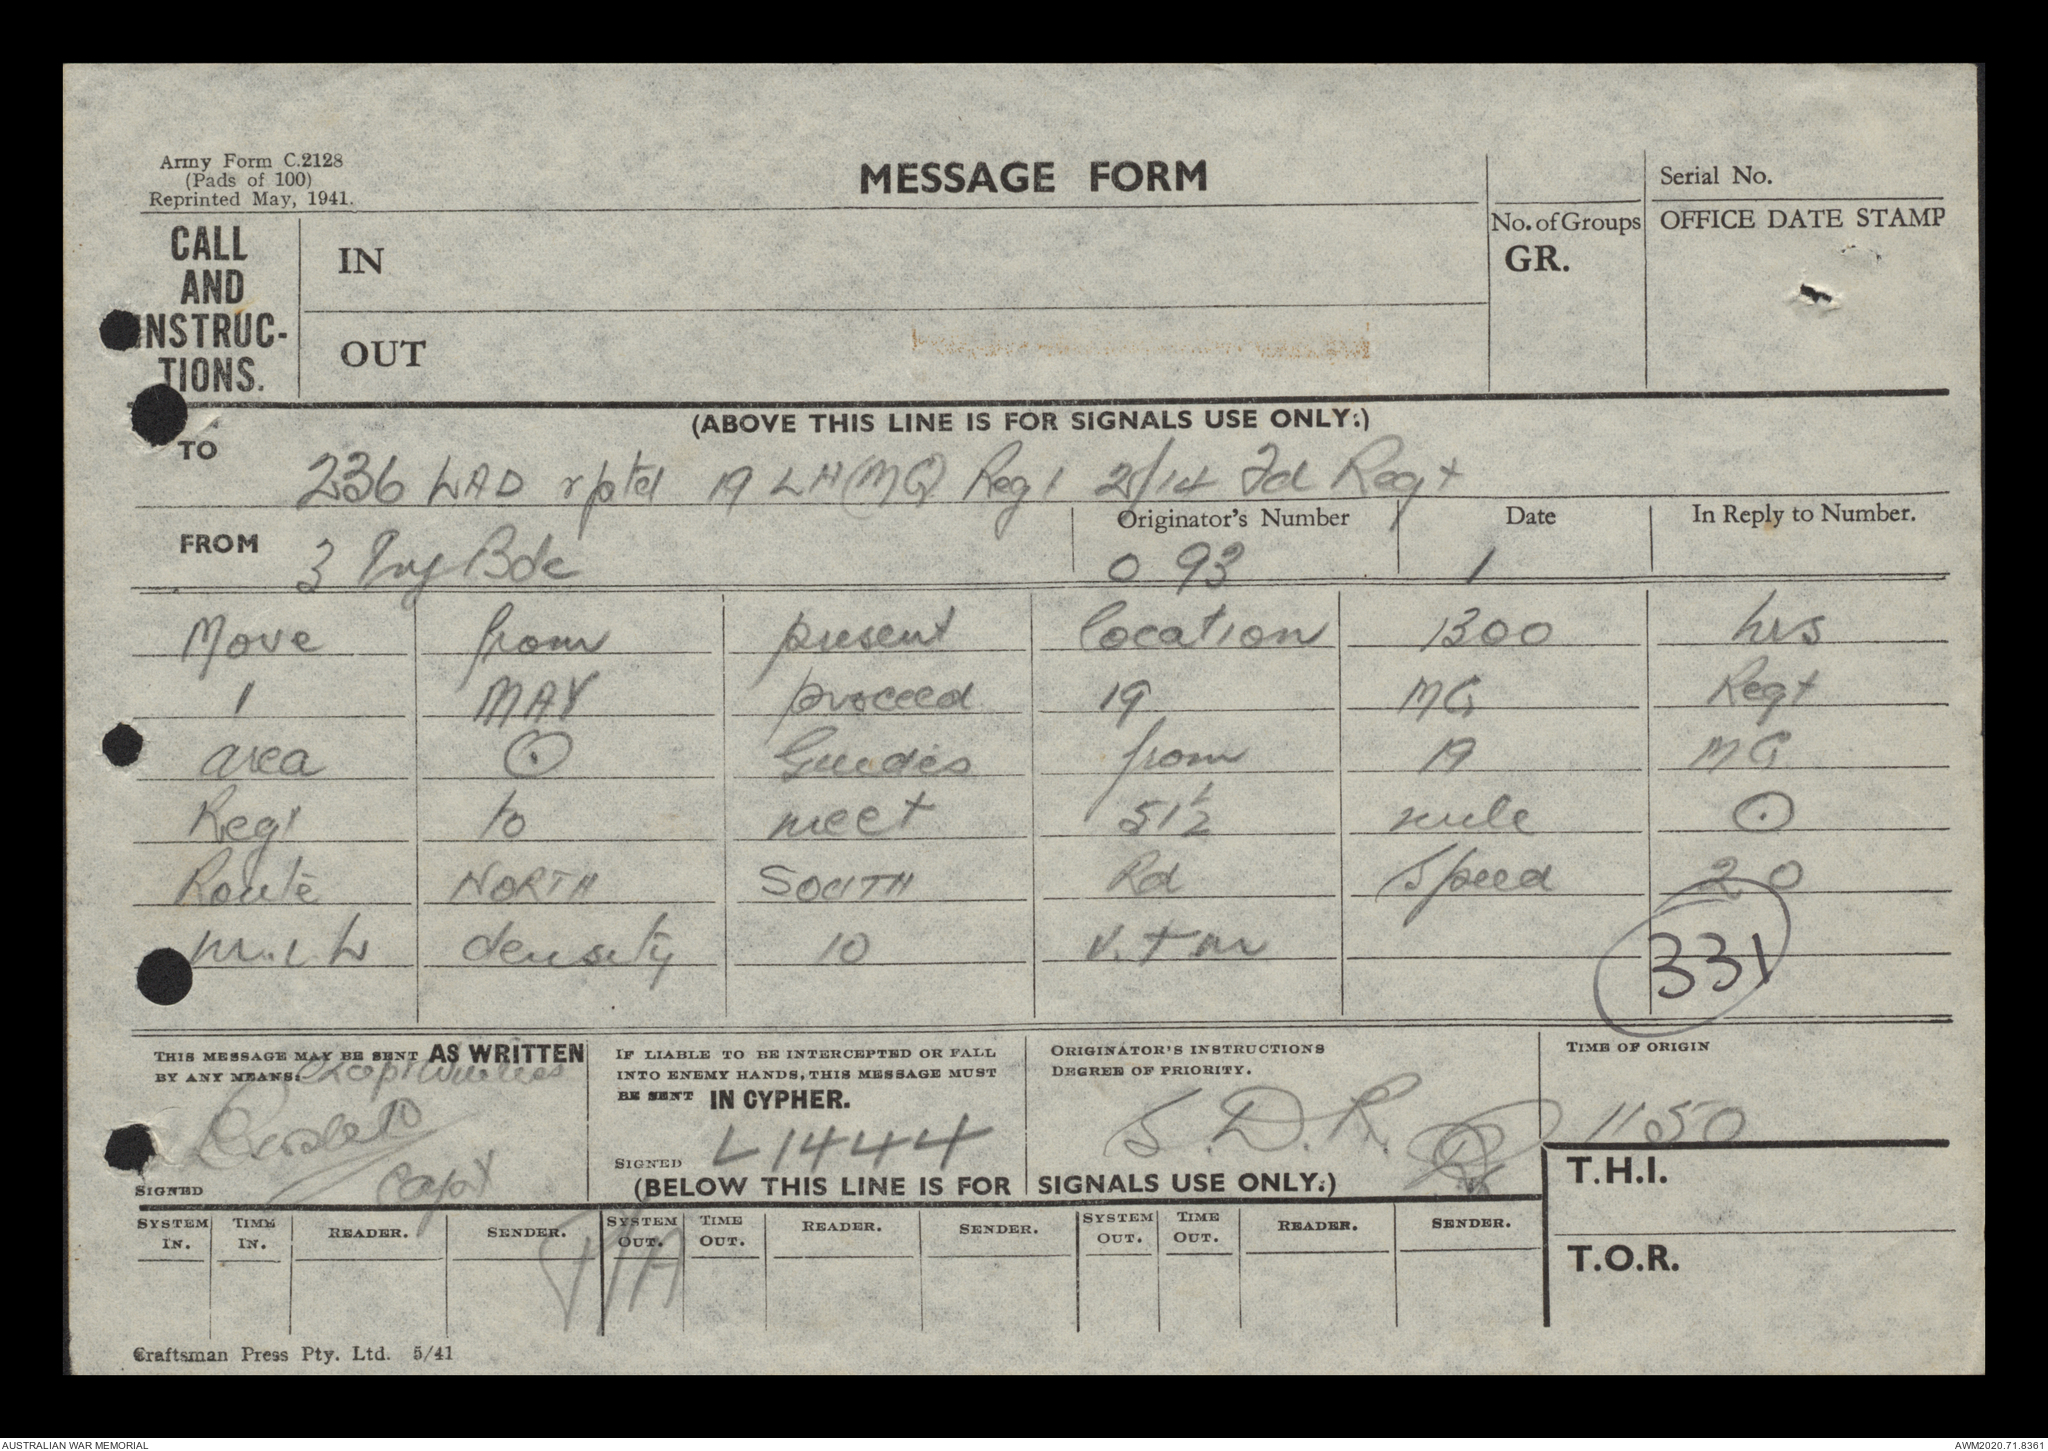 Army Form C.2128
(Pads of 100)
Reprinted May, 1941.
MESSAGE FORM
Serial No.
No. of Groups
GR.
OFFICE DATE STAMP
CALL
AND
INSTRUC-
TIONS.
IN
OUT
(ABOVE THIS LINE IS FOR SIGNALS USE ONLY.)
TO
236 LAD rptd 19 LH (MG) Regt 2/14 Fd Regt
FROM
3 Inf Bde
Originator's Number
O 93
Date
1
In Reply to Number.
Move from present location 1300 hrs
1 MAY proceed 19 MG Regt
area ⊙ Guides from 19 MG
Regt to meet 51½ mile ⊙
Route NORTH SOUTH Rd Speed 20
m.i.h density 10 v.t.m
331
THIS MESSAGE MAY BE SENT AS WRITTEN
BY ANY MEANS.
except wireless
Capt
SIGNED
IF LIABLE TO BE INTERCEPTED OR FALL
INTO ENEMY HANDS, THIS MESSAGE MUST
BE SENT IN CYPHER.
SIGNED
L1444
ORIGINATOR'S INSTRUCTIONS
DEGREE OF PRIORITY.
S.D.R.
TIME OF ORIGIN
1150
(BELOW THIS LINE IS FOR SIGNALS USE ONLY.)
T.H.I.
T.O.R.
SYSTEM IN. TIME IN. READER. SENDER. SYSTEM OUT. TIME OUT. READER. SENDER. SYSTEM OUT. TIME OUT. READER. SENDER.
Craftsman Press Pty. Ltd. 5/41
AUSTRALIAN WAR MEMORIAL
AWM2020.71.8361